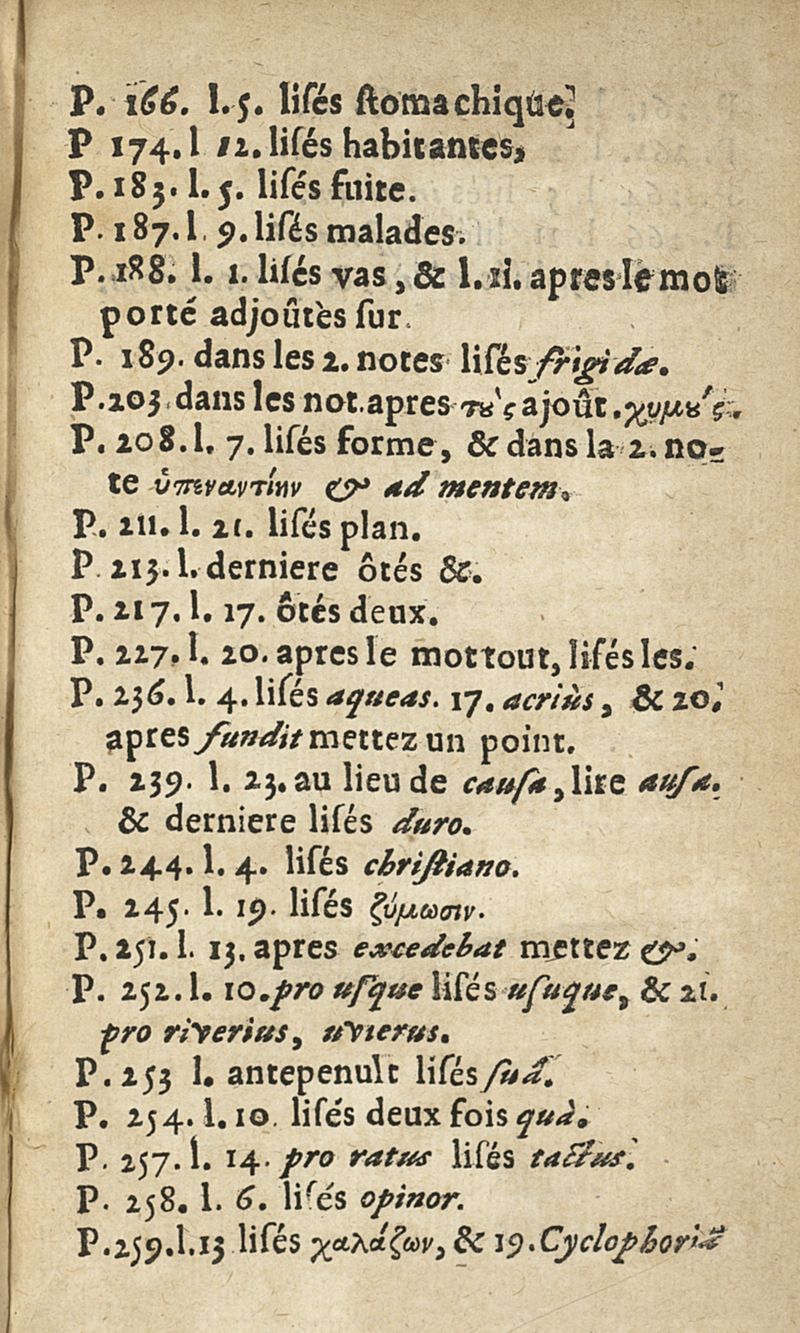 P. 166. l. 5. liſés ſtomachique.
P 174. l 12. liſés habitantes,
P. 183. l. 5. liſés fuite.
P. 187. l. 9. liſés malades.
P. 188. l. 1. liſés vas, & l. 11. apres le mot
porté adjoûtès ſur.
P. 189. dans les 2. notes liſés frigidæ.
P. 203. dans les not. apres τȣ̀ς ajoût. χυμȣ́ς.
P. 208. l. 7. liſés forme, & dans la 2. no-
te ὑπεναντίην & ad mentem.
P. 211. l. 21. liſés plan.
P. 213. l. derniere ôtés &.
P. 217. l. 17. ôtés deux.
P. 227. l. 20. apres le mot tout, liſés les.
P. 236. l. 4. liſés aqueas. 17. acriùs, & 20.
apres fundit mettez un point.
P. 239. l. 23. au lieu de cauſa, lire auſa.
& derniere liſés duro.
P. 244. l. 4. liſés chriſtiano.
P. 245. l. 19. liſés ζύμωσιν.
P. 251. l. 13. apres excedebat mettez &.
P. 252. l. 10. pro uſque liſés uſuque, & 21.
pro riverius, uvierus.
P. 253 l. antepenult liſés ſuâ.
P. 254. l. 10. liſés deux fois quà.
P. 257. l. 14. pro ratus liſés tactus.
P. 258. l. 6. liſés opinor.
P. 259. l. 13 liſés χαλάζων, & 19. Cyclophoriæ